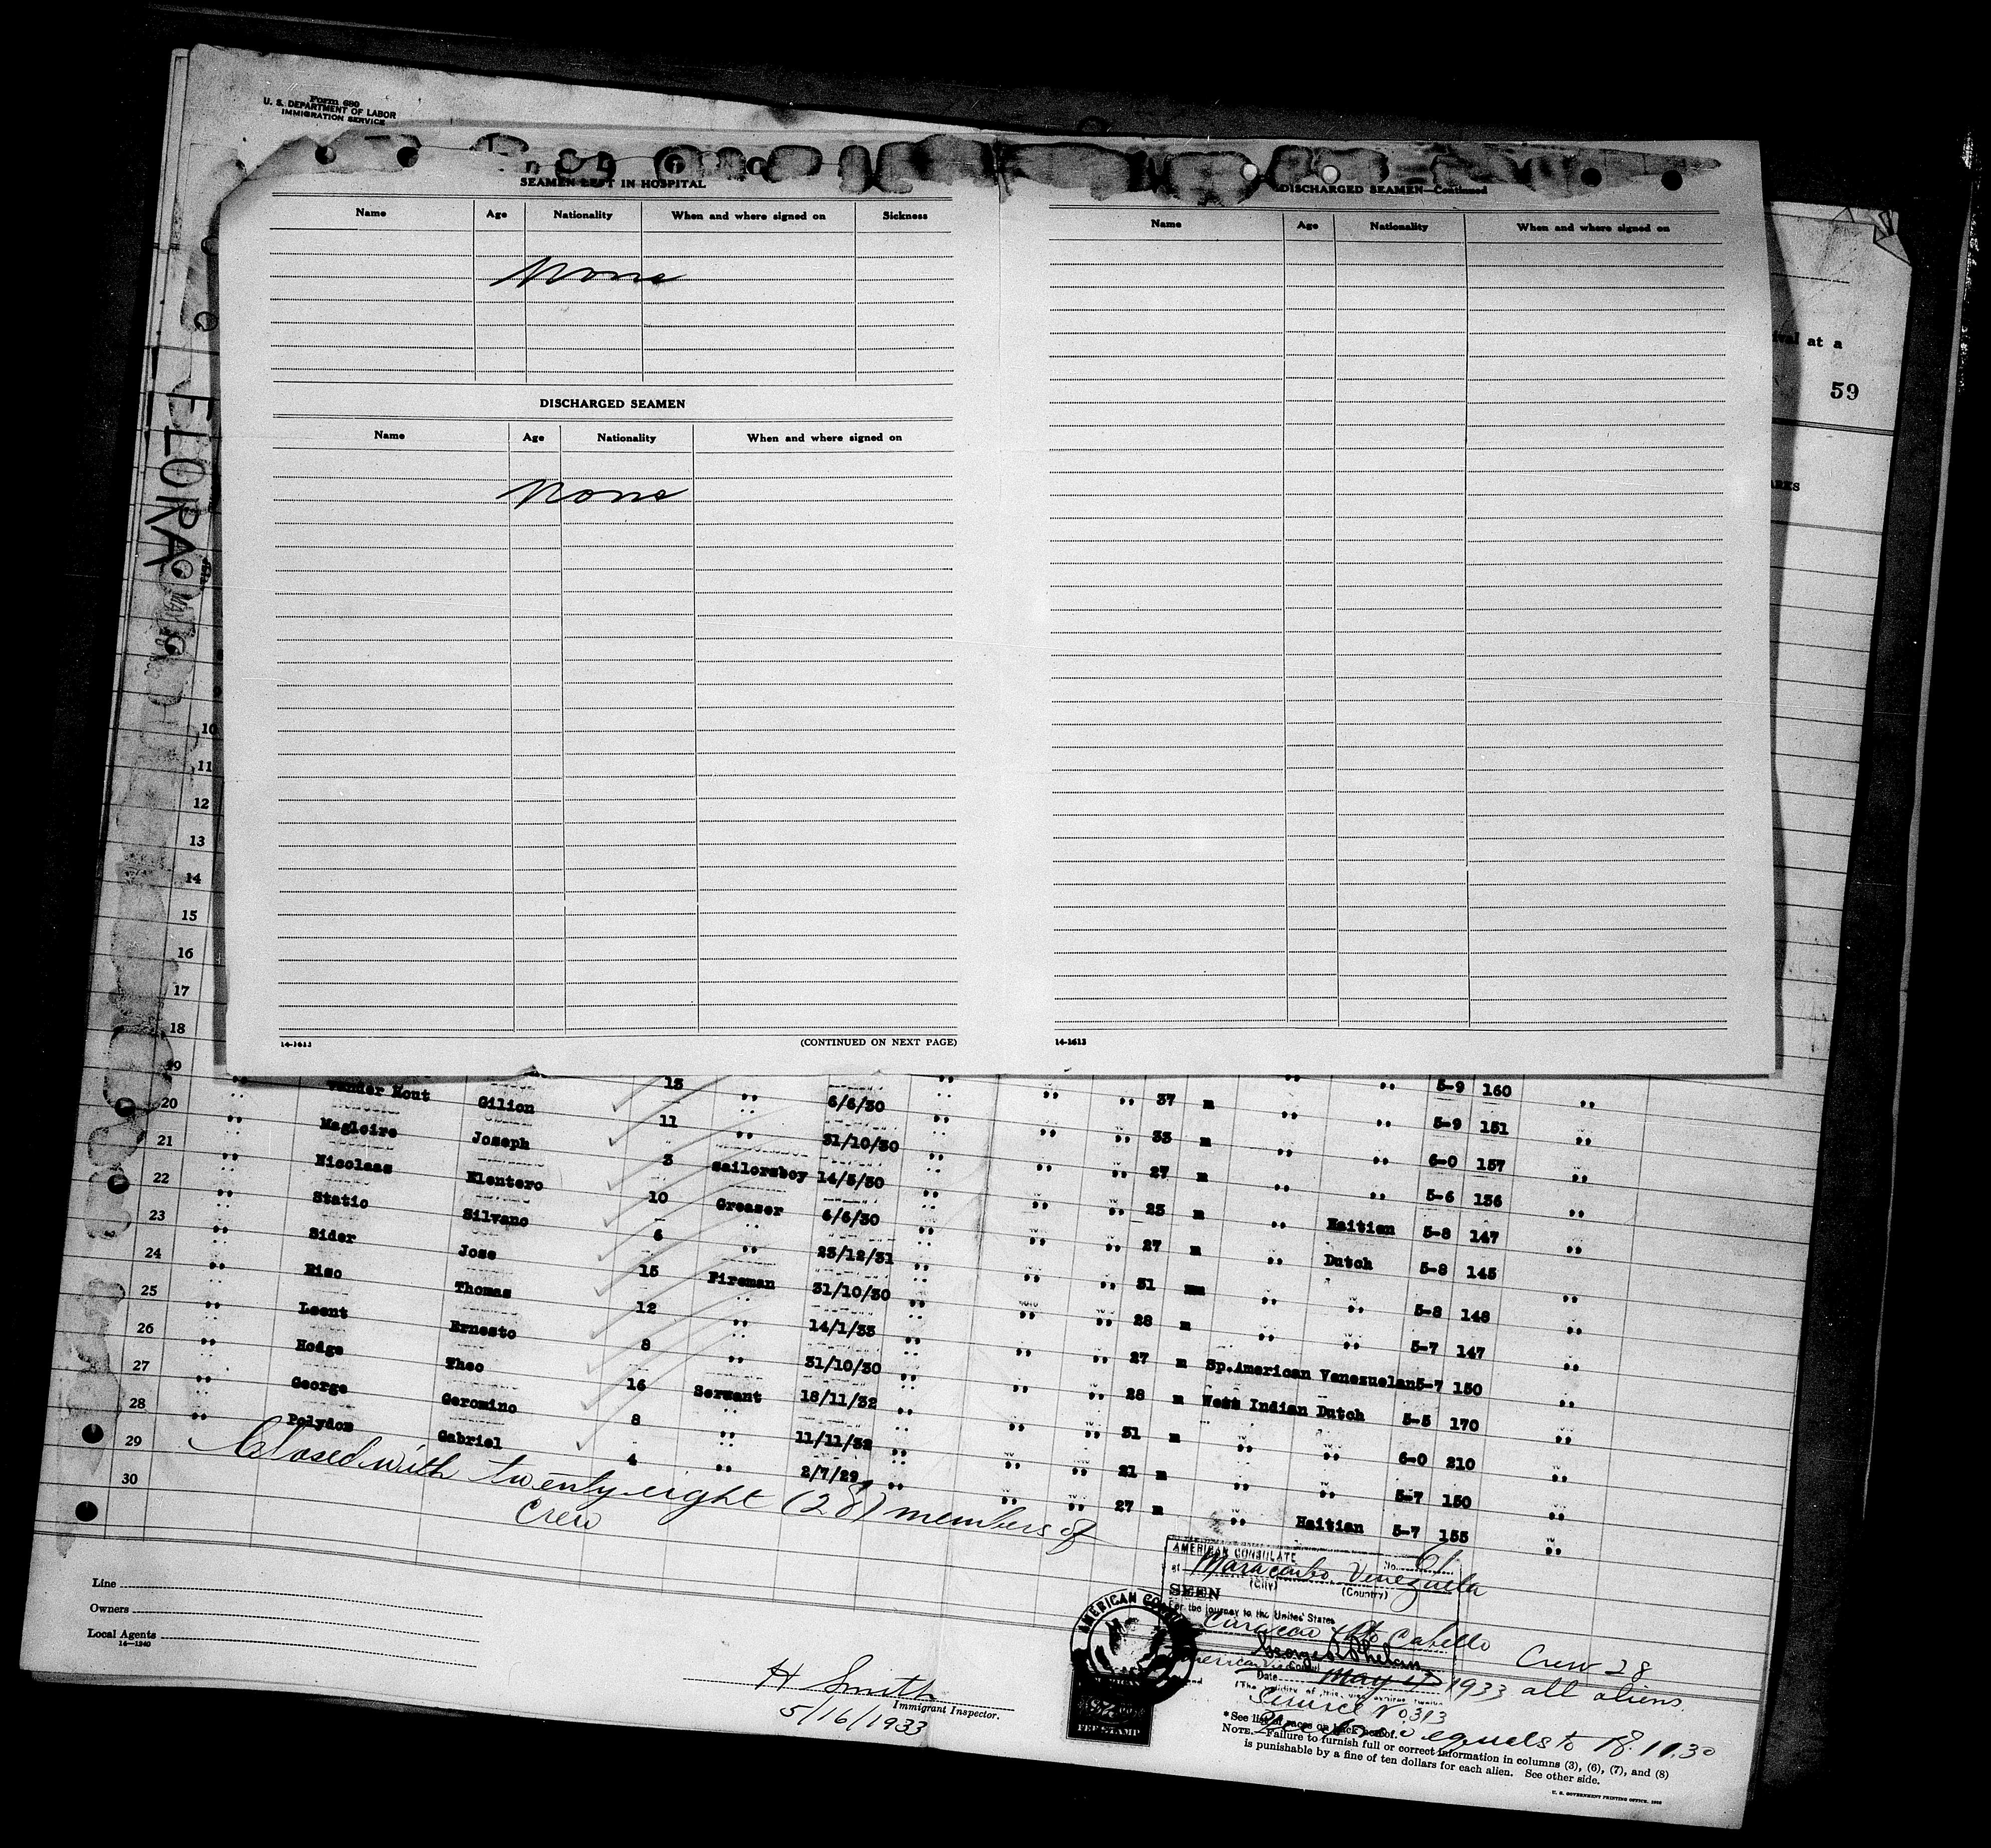 Form 680
U. S. DEPARTMENT OF LABOR
IMMIGRATION SERVICE
FLORA
SEAMEN LEFT IN HOSPITAL
Name Age Nationality When and where signed on Sickness
None
DISCHARGED SEAMEN
Name Age Nationality When and where signed on
None
14-1613 (CONTINUED ON NEXT PAGE)
DISCHARGED SEAMEN—Continued
Name Age Nationality When and where signed on
14-1613
at a
59
10
11
12
13
14
15
16
17
18
19 13 5-9 160
20 Vander Hout Gilion 11 " 6/6/30 " " " 37 m " " 5-9 151 "
21 Magloire Joseph 3 " 31/10/30 " " " 33 m " " 6-0 157 "
22 Nicolaas Elentero 10 sailorsboy 14/3/30 " " " 27 m " " 5-6 136 "
23 Statio Silvano 6 Greaser 6/6/30 " " " 25 m " Haitian 5-8 147 "
24 Sider Jose 15 " 23/12/31 " " " 27 m " Dutch 5-8 145 "
25 Riso Thomas 12 Fireman 31/10/30 " " " 31 m " " 5-8 148 "
26 Leent Ernesto 8 " 14/1/33 " " " 28 m " " 5-7 147 "
27 Hodge Theo 16 " 31/10/30 " " " 27 m Sp.American Venezuelan 5-7 150 "
28 George Geromino 8 Servant 18/11/32 " " " 28 m West Indian Dutch 5-5 170 "
29 Polydom Gabriel 4 " 11/11/32 " " " 31 m " " 6-0 210 "
30 " 2/7/29 " " " 21 m " " 5-7 150 "
27 m " Haitian 5-7 155 "
Closed with twenty eight (28) members of
Crew
Line
Owners
Local Agents
14-1240
H Smith
Immigrant Inspector.
5/16/1933
AMERICAN CONSULATE No. 61
at Maracaibo, Venezuela
(City) (Country)
SEEN
For the journey to the United States
Curacao Pto Cabello
Crew 28
Date May 4 1933 all aliens
Service No 313
equals to 18.11.30
AMERICAN
FEE STAMP
* See list of races on back hereof.
NOTE.—Failure to furnish full or correct information in columns (3), (6), (7), and (8)
is punishable by a fine of ten dollars for each alien. See other side.
U. S. GOVERNMENT PRINTING OFFICE